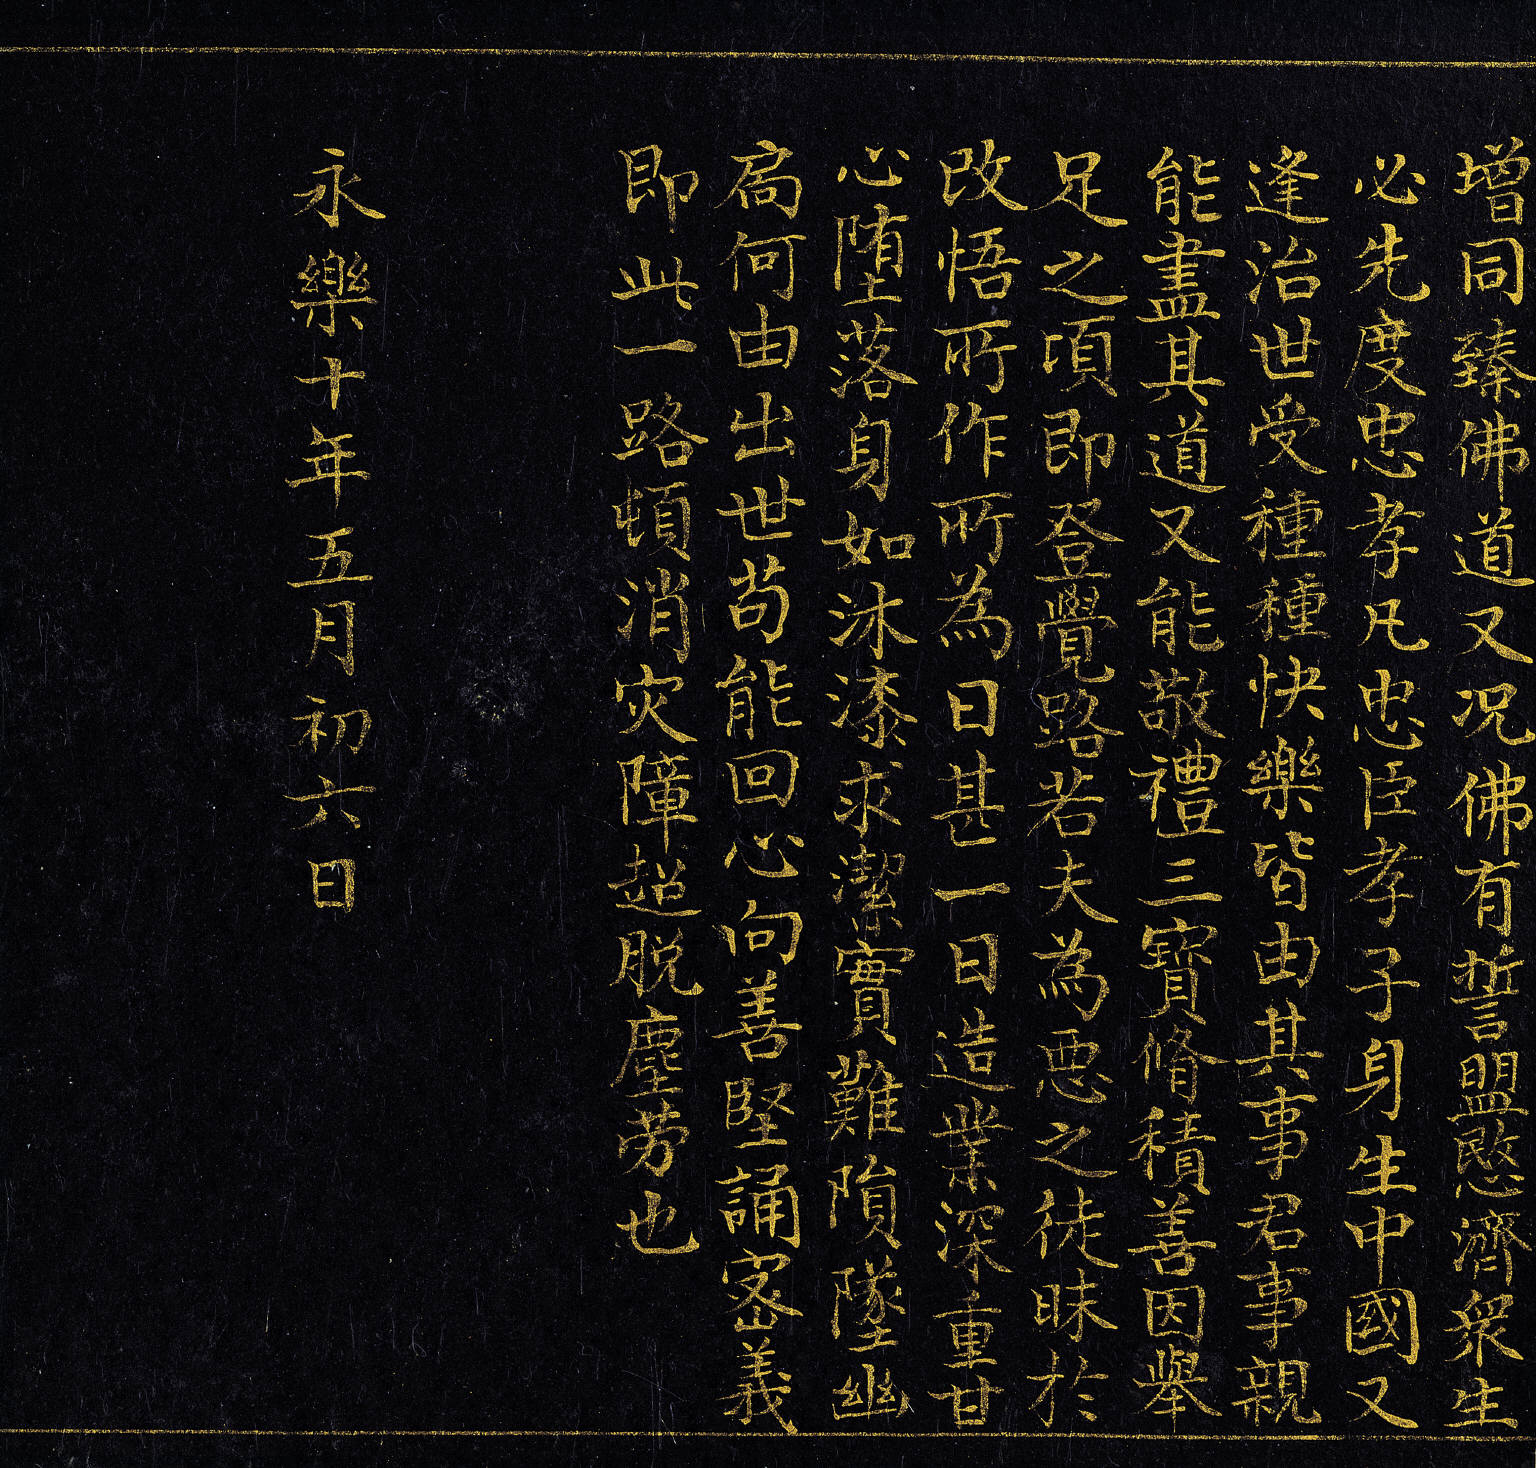 增同臻佛道又况佛有誓盟愍濟衆生
必先度忠孝凡忠臣孝子身生中國又
逢治世受種種快樂皆由其事君事親
能盡其道又能敬禮三寶脩積善因舉
足之頃即登覺路若夫為惡之徒昧於
改悟所作所為日甚一日造業深重甘
心墮落身如沐漆求潔實難隕墜幽
扃何由出世苟能回心向善堅誦密義
即此一路頓消灾障超脱塵劳也
永樂十年五月初六日